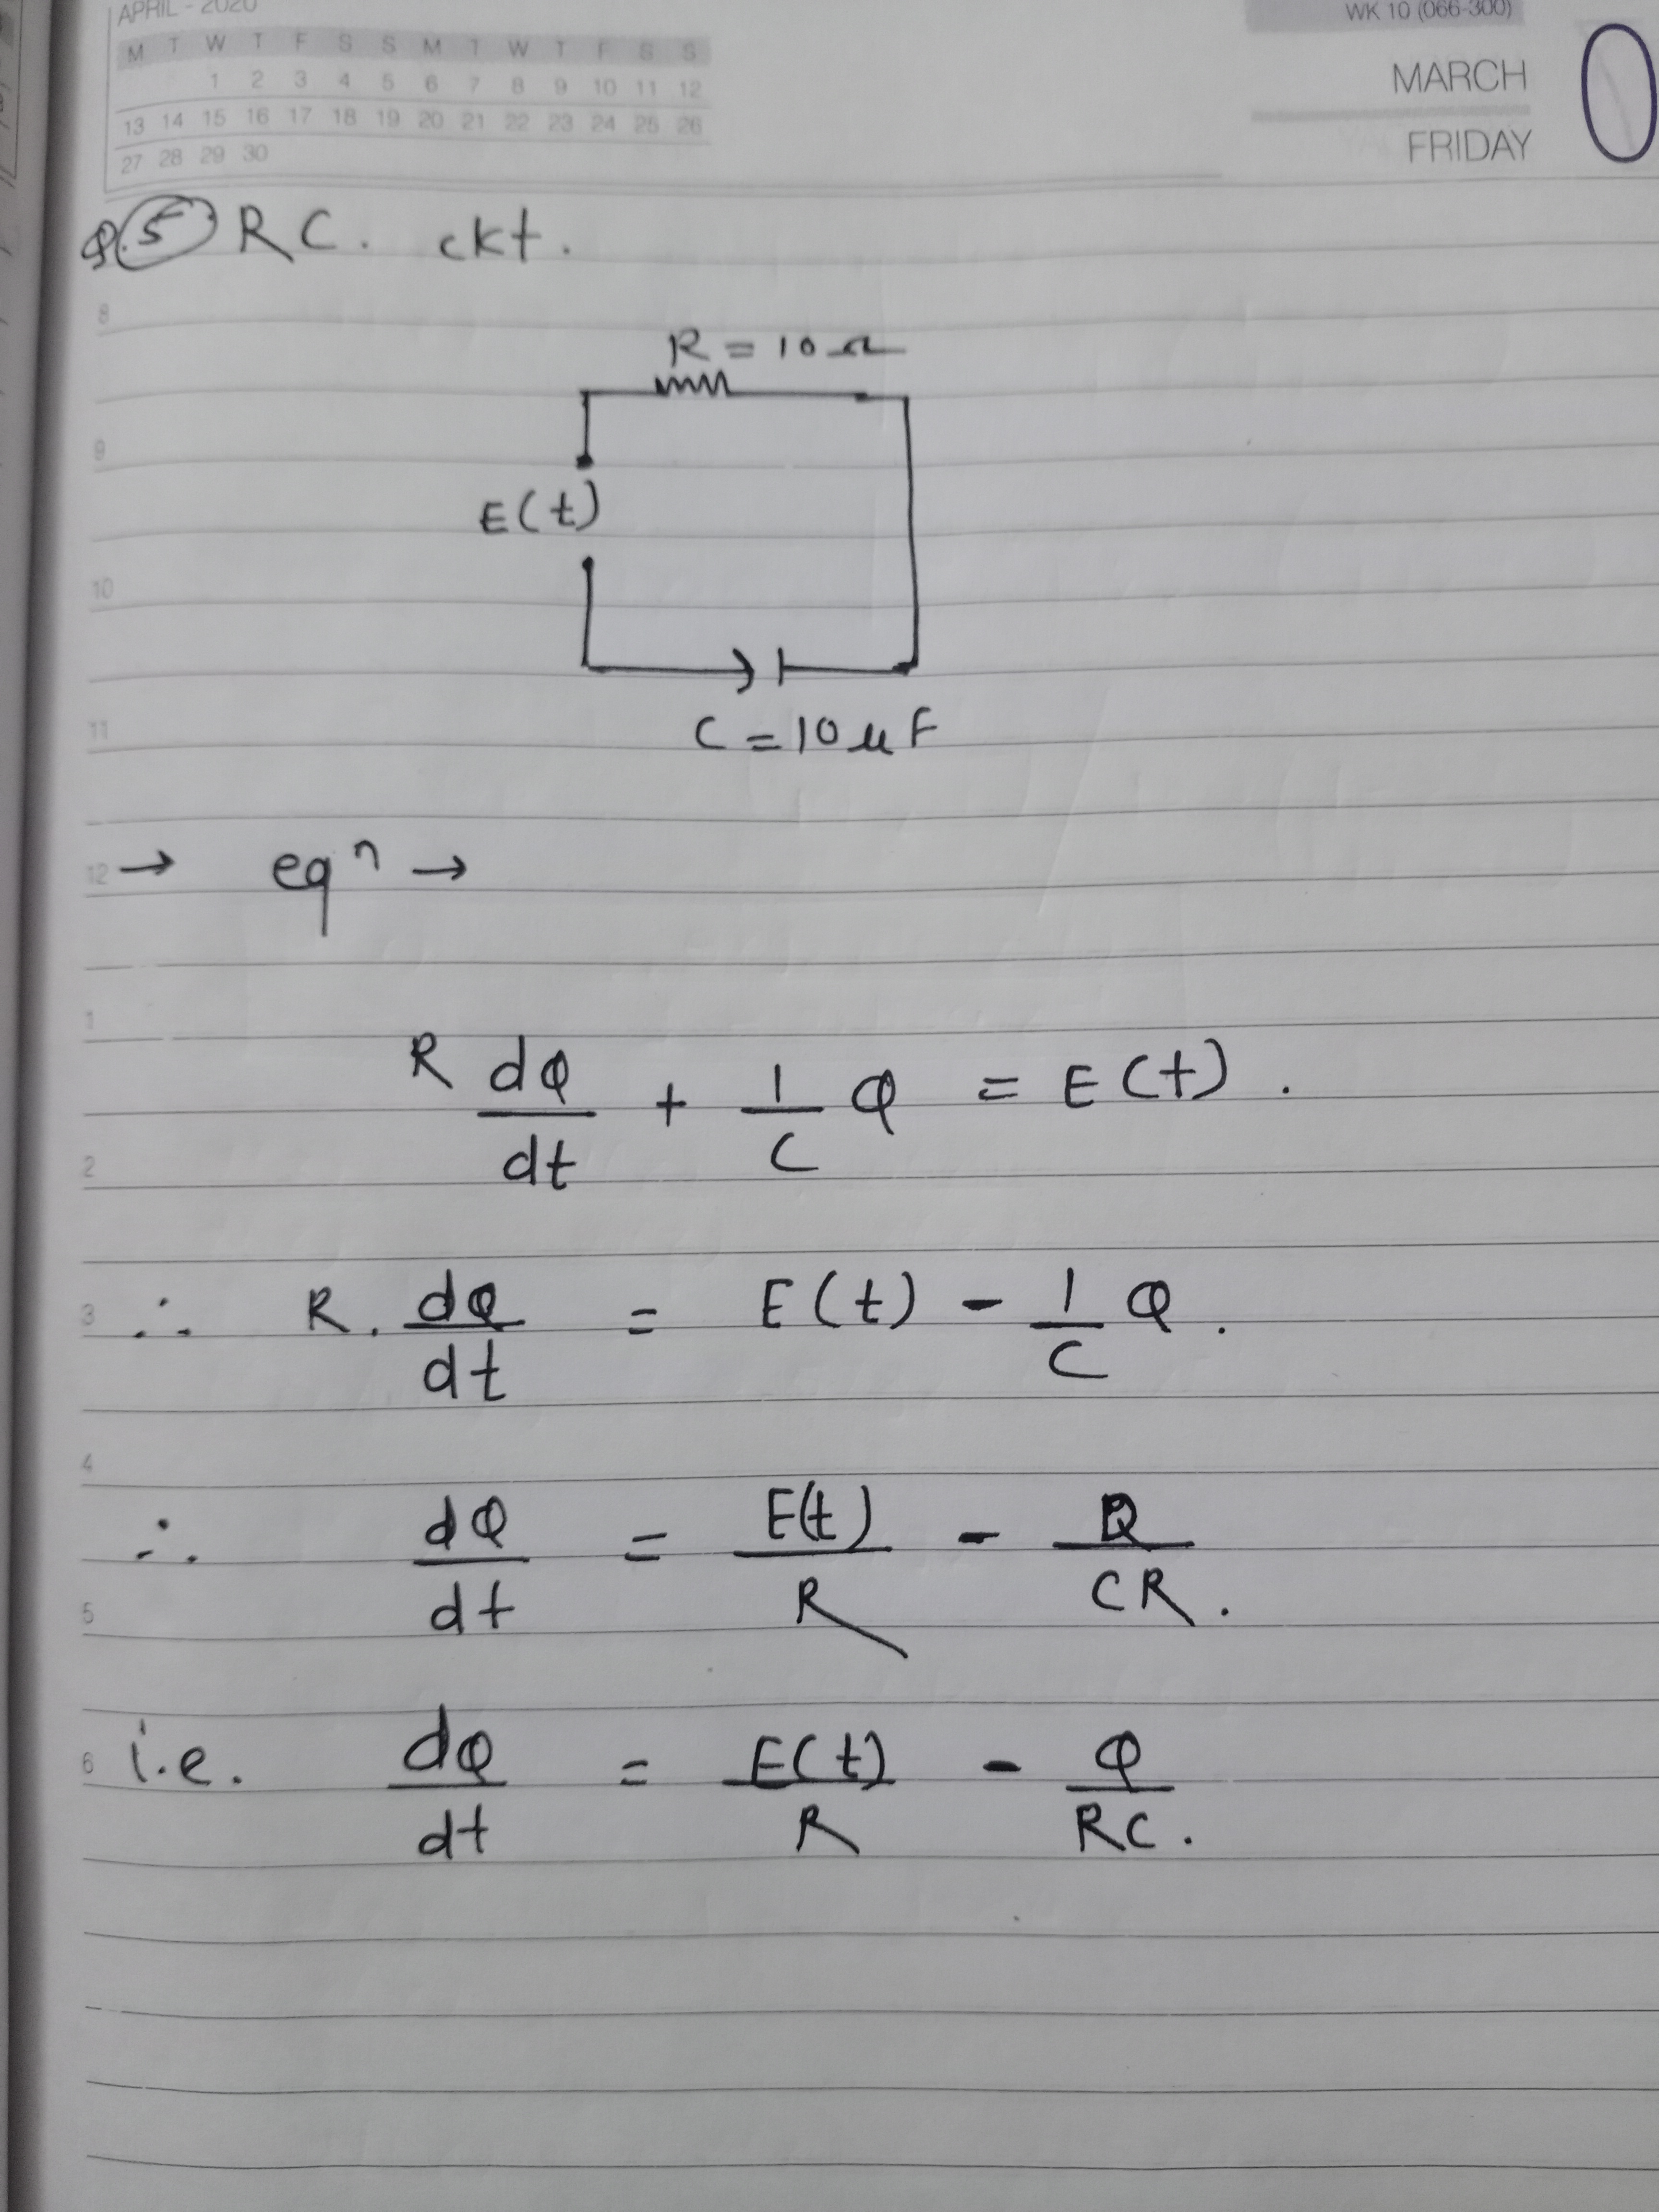 APRIL - 2020
M T W T F S S M T W T F S S
1 2 3 4 5 6 7 8 9 10 11 12
13 14 15 16 17 18 19 20 21 22 23 24 25 26
27 28 29 30
WK 10 (066-300)
MARCH
FRIDAY
0
Q.5 RC. ckt.
8
R = 10 Ω
9
E(t)
10
11
C = 10 μF
12 → eqⁿ →
1
R dQ/dt + 1/C Q = E(t).
2
3 ∴ R. dQ/dt = E(t) - 1/C Q.
4
∴ dQ/dt = E(t)/R - Q/CR.
5
6 i.e. dQ/dt = E(t)/R - Q/RC.